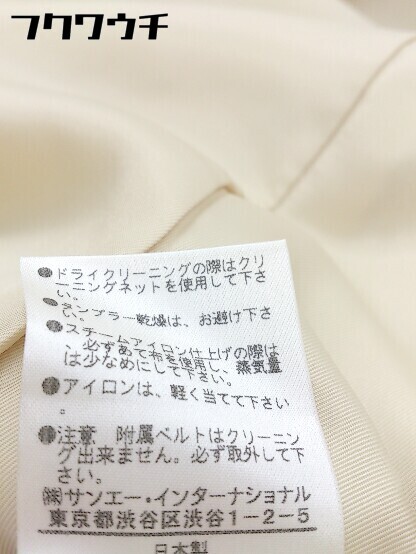 フクワウチ
●ドライクリーニングの際はクリ
ーニングネットを使用して下さ
い。
●タンブラー乾燥は、お避け下さ
い。
●スチームアイロン仕上げの際は
、必ずあて布を使用し、蒸気量
は少なめにして下さい。
●アイロンは、軽く当てて下さい
。
●注意 附属ベルトはクリーニン
グ出来ません。必ず取外して下
さい。
㈱サンエー・インターナショナル
東京都渋谷区渋谷1-2-5
日本製